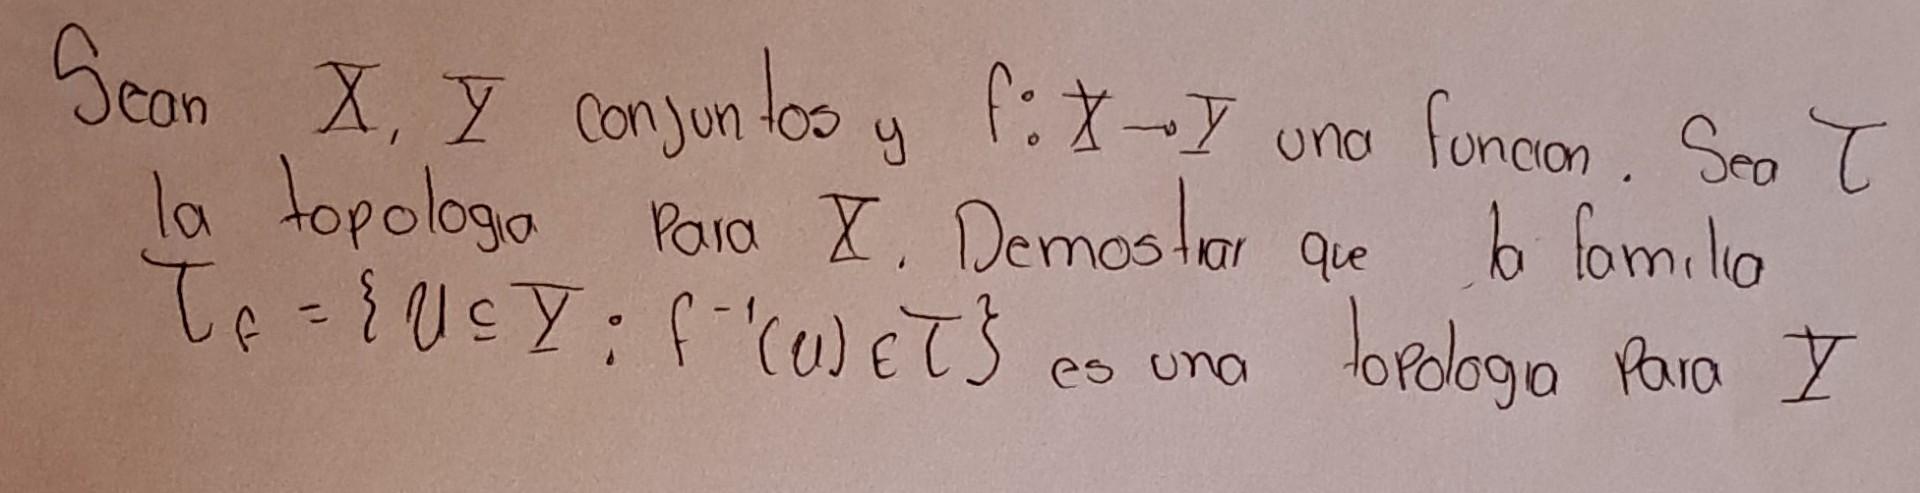 Sean X, Y conjuntos y f: X→Y una funcion. Sea τ
la topologia Para X. Demostrar que la familia
τ_f = {U ⊆ Y : f⁻¹(U) ∈ τ} es una topologia Para Y